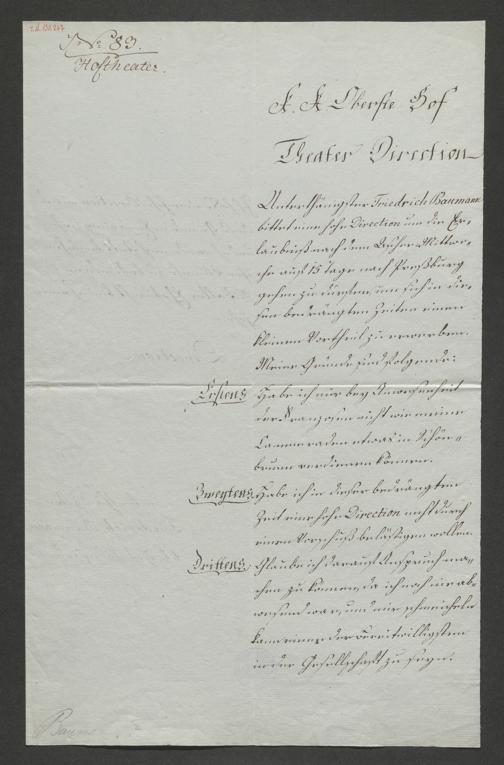 No 83.
Hoftheater.
K. K. Oberste Hof
Theater Direction
Unterthänigster Friedrich Baumann
bittet eine hohe Direction um die Er-
laubniß nach dem Ascher-Mittwo-
che auf 15 tage nach Preßburg
gehen zu dürfen, um sich in die-
sen bedrängten Zeiten einen
kleinen Vortheil zu erwerben.
Meine Gründe sind folgende:
Erstens Habe ich nur bey Anwesenheit
der Franzosen nicht wie meine
Cammeraden etwas in Schön-
brunn verdienen können.
Zweytens. Habe ich in dieser bedrängten
Zeit eine hohe Direction nicht durch
einen Vorschuß belästigen wollen.
Drittens. Glaube ich darauf Anspruch ma-
chen zu können, da ich noch nie ab-
wesend war, und mir schmeicheln
kann einer der bereitwilligsten
in der Gesellschaft zu seyn.